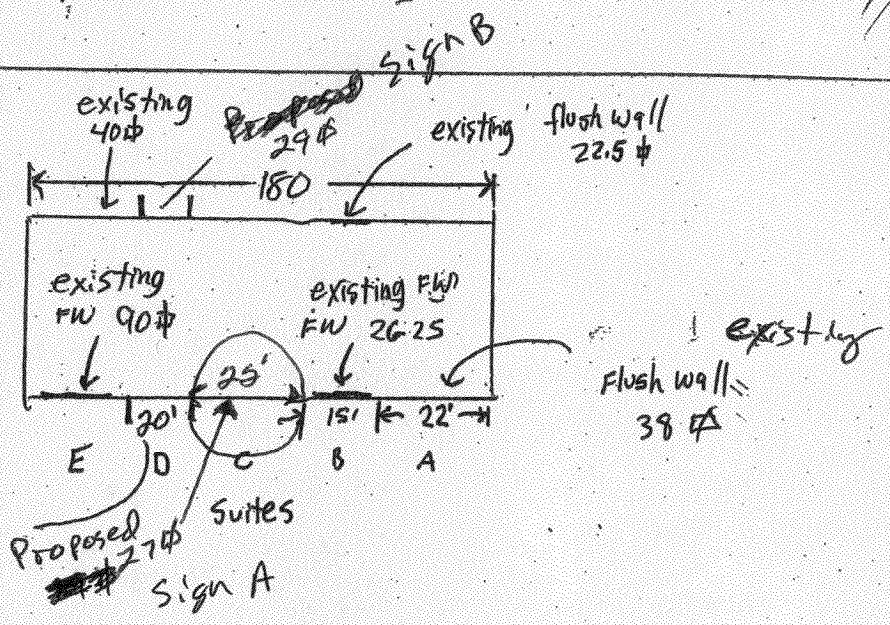 Sign B
existing
40⌷
Proposed
29⌷
existing flush wall
22.5 ⌷
180
existing
FW 90⌷
existing FW
FW 26.25
existing
Flush wall
38 ⌷
25'
20' 15' 22'
E D C B A
Suites
Proposed
27⌷
Sign A